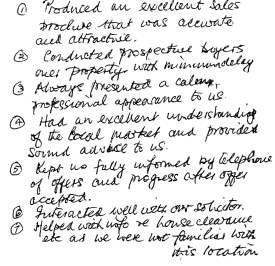 ① Produced an excellent sales
brochure that was accurate
and attractive.
② Conducted prospective buyers
over property with minimum delay
③ Always presented a calm,
professional appearance to us.
④ Had an excellent understanding
of the local market and provided
sound advise to us.
⑤ Kept us fully informed by telephone
of offers and progress after offer
accepted.
⑥ Interacted well with our solicitor.
⑦ Helped with info re house clearance
etc as we were not familiar with
this location